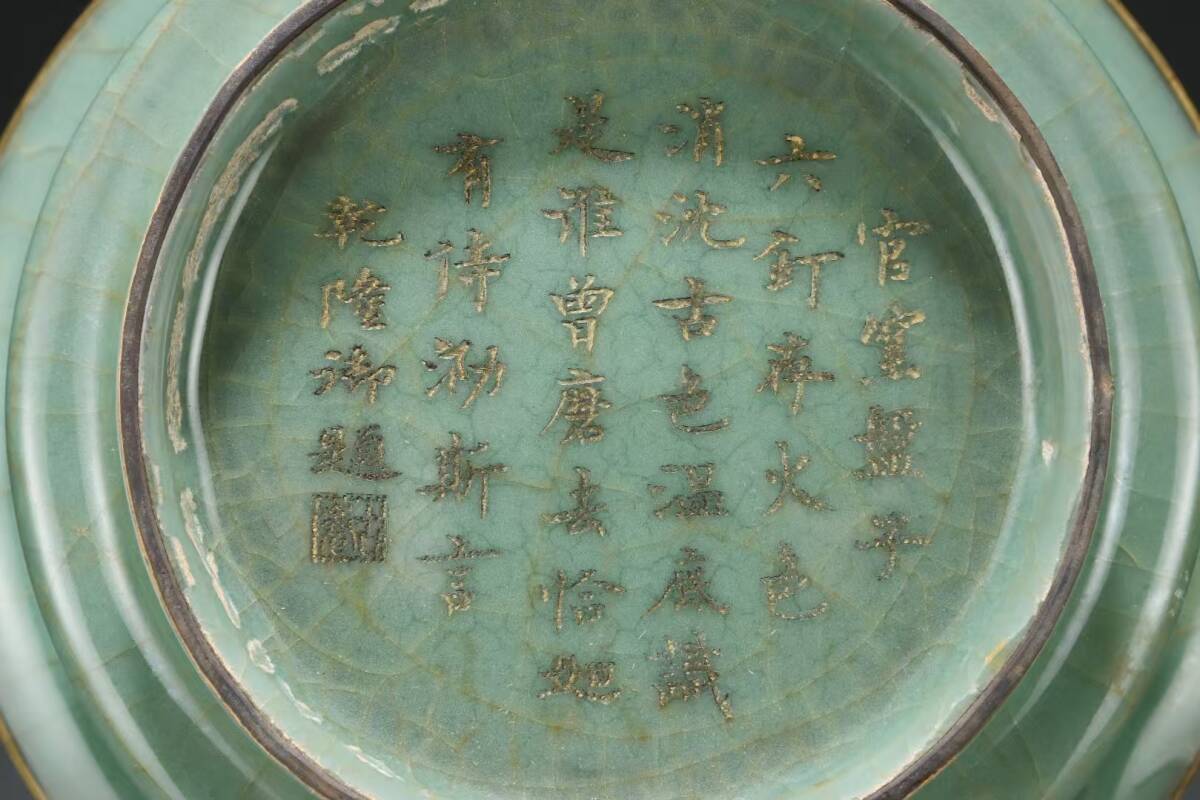 官窯盤子
六釘存火色
消沈古色温底識
是誰曾磨去恰如
有待勒斯言
乾隆御題